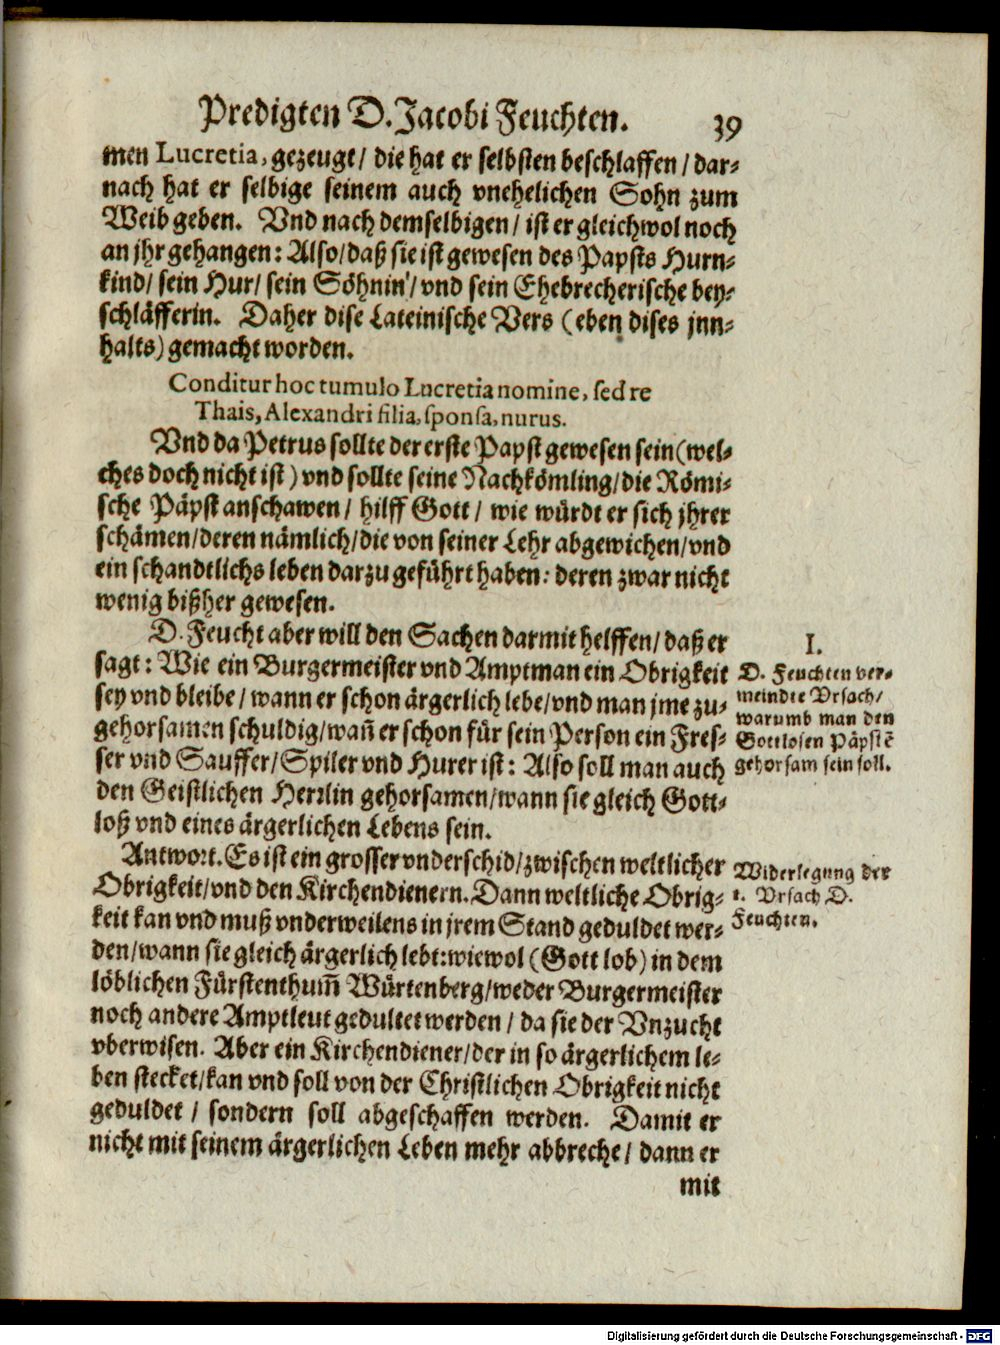 Predigten D. Jacobi Feuchten. 39
men Lucretia, gezeugt/ die hat er selbsten beschlaffen/ dar-
nach hat er selbige seinem auch vnehelichen Sohn zum
Weib geben. Vnd nach demselbigen/ ist er gleichwol noch
an jhr gehangen: Also/ daß sie ist gewesen des Papsts Hurn-
kind/ sein Hur/ sein Söhnin/ vnd sein Ehebrecherische bey-
schläfferin. Daher dise Lateinische Vers (eben dises jnn-
halts) gemacht worden.
Conditur hoc tumulo Lucretia nomine, sed re
Thais, Alexandri filia, sponsa, nurus.
Vnd da Petrus sollte der erste Papst gewesen sein (wel-
ches doch nicht ist) vnd sollte seine Nachkömling/ die Römi-
sche Päpst anschawen/ hilff Gott/ wie würdt er sich jhrer
schämen/ deren nämlich/ die von seiner Lehr abgewichen/ vnd
ein schandtlichs leben darzu geführt haben: deren zwar nicht
wenig bißher gewesen.
D. Feucht aber will den Sachen darmit helffen/ daß er
sagt: Wie ein Burgermeister vnd Amptman ein Obrigkeit
sey vnd bleibe/ wann er schon ärgerlich lebe/ vnd man jme zu-
gehorsamen schuldig/ wañ er schon für sein Person ein Fres-
ser vnd Sauffer/ Spiler vnd Hurer ist: Also soll man auch
den Geistlichen Herrlin gehorsamen/ wann sie gleich Gott-
loß vnd eines ärgerlichen Lebens sein.
I.
D. Feuchten ver-
meindte Vrsach/
warumb man den
Gottlosen Päpstẽ
gehorsam sein soll.
Antwort. Es ist ein grosser vnderschid/ zwischen weltlicher
Obrigkeit/ vnd den Kirchendienern. Dann weltliche Obrig-
keit kan vnd muß vnderweilens in jrem Stand geduldet wer-
den/ wann sie gleich ärgerlich lebt: wiewol (Gott lob) in dem
löblichen Fürstenthum̃ Würtenberg/ weder Burgermeister
noch andere Amptleut gedultet werden/ da sie der Vnzucht
vberwisen. Aber ein Kirchendiener/ der in so ärgerlichem le-
ben stecket/ kan vnd soll von der Christlichen Obrigkeit nicht
geduldet/ sondern soll abgeschaffen werden. Damit er
nicht mit seinem ärgerlichen Leben mehr abbreche/ dann er
mit
Widerlegung der
1. Vrsach D.
Feuchten.
Digitalisierung gefördert durch die Deutsche Forschungsgemeinschaft - DFG